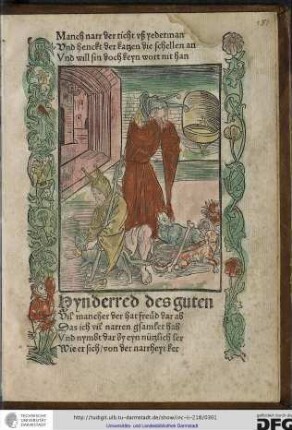 Manch narr der richt vß yederman
Vnd henckt der katzen die schellen an
Vnd will sin doch keyn wort nit han
Hynderred des guten
Vil mancher der hat freüd dar ab
Das ich vil narren gsamlet hab
Vnd nymbt dar by eyn nützlich ler
Wie er sich / von der narrheyt ker
http://tudigit.ulb.tu-darmstadt.de/show/inc-ii-218/0391
Universitäts- und Landesbibliothek Darmstadt
DFG